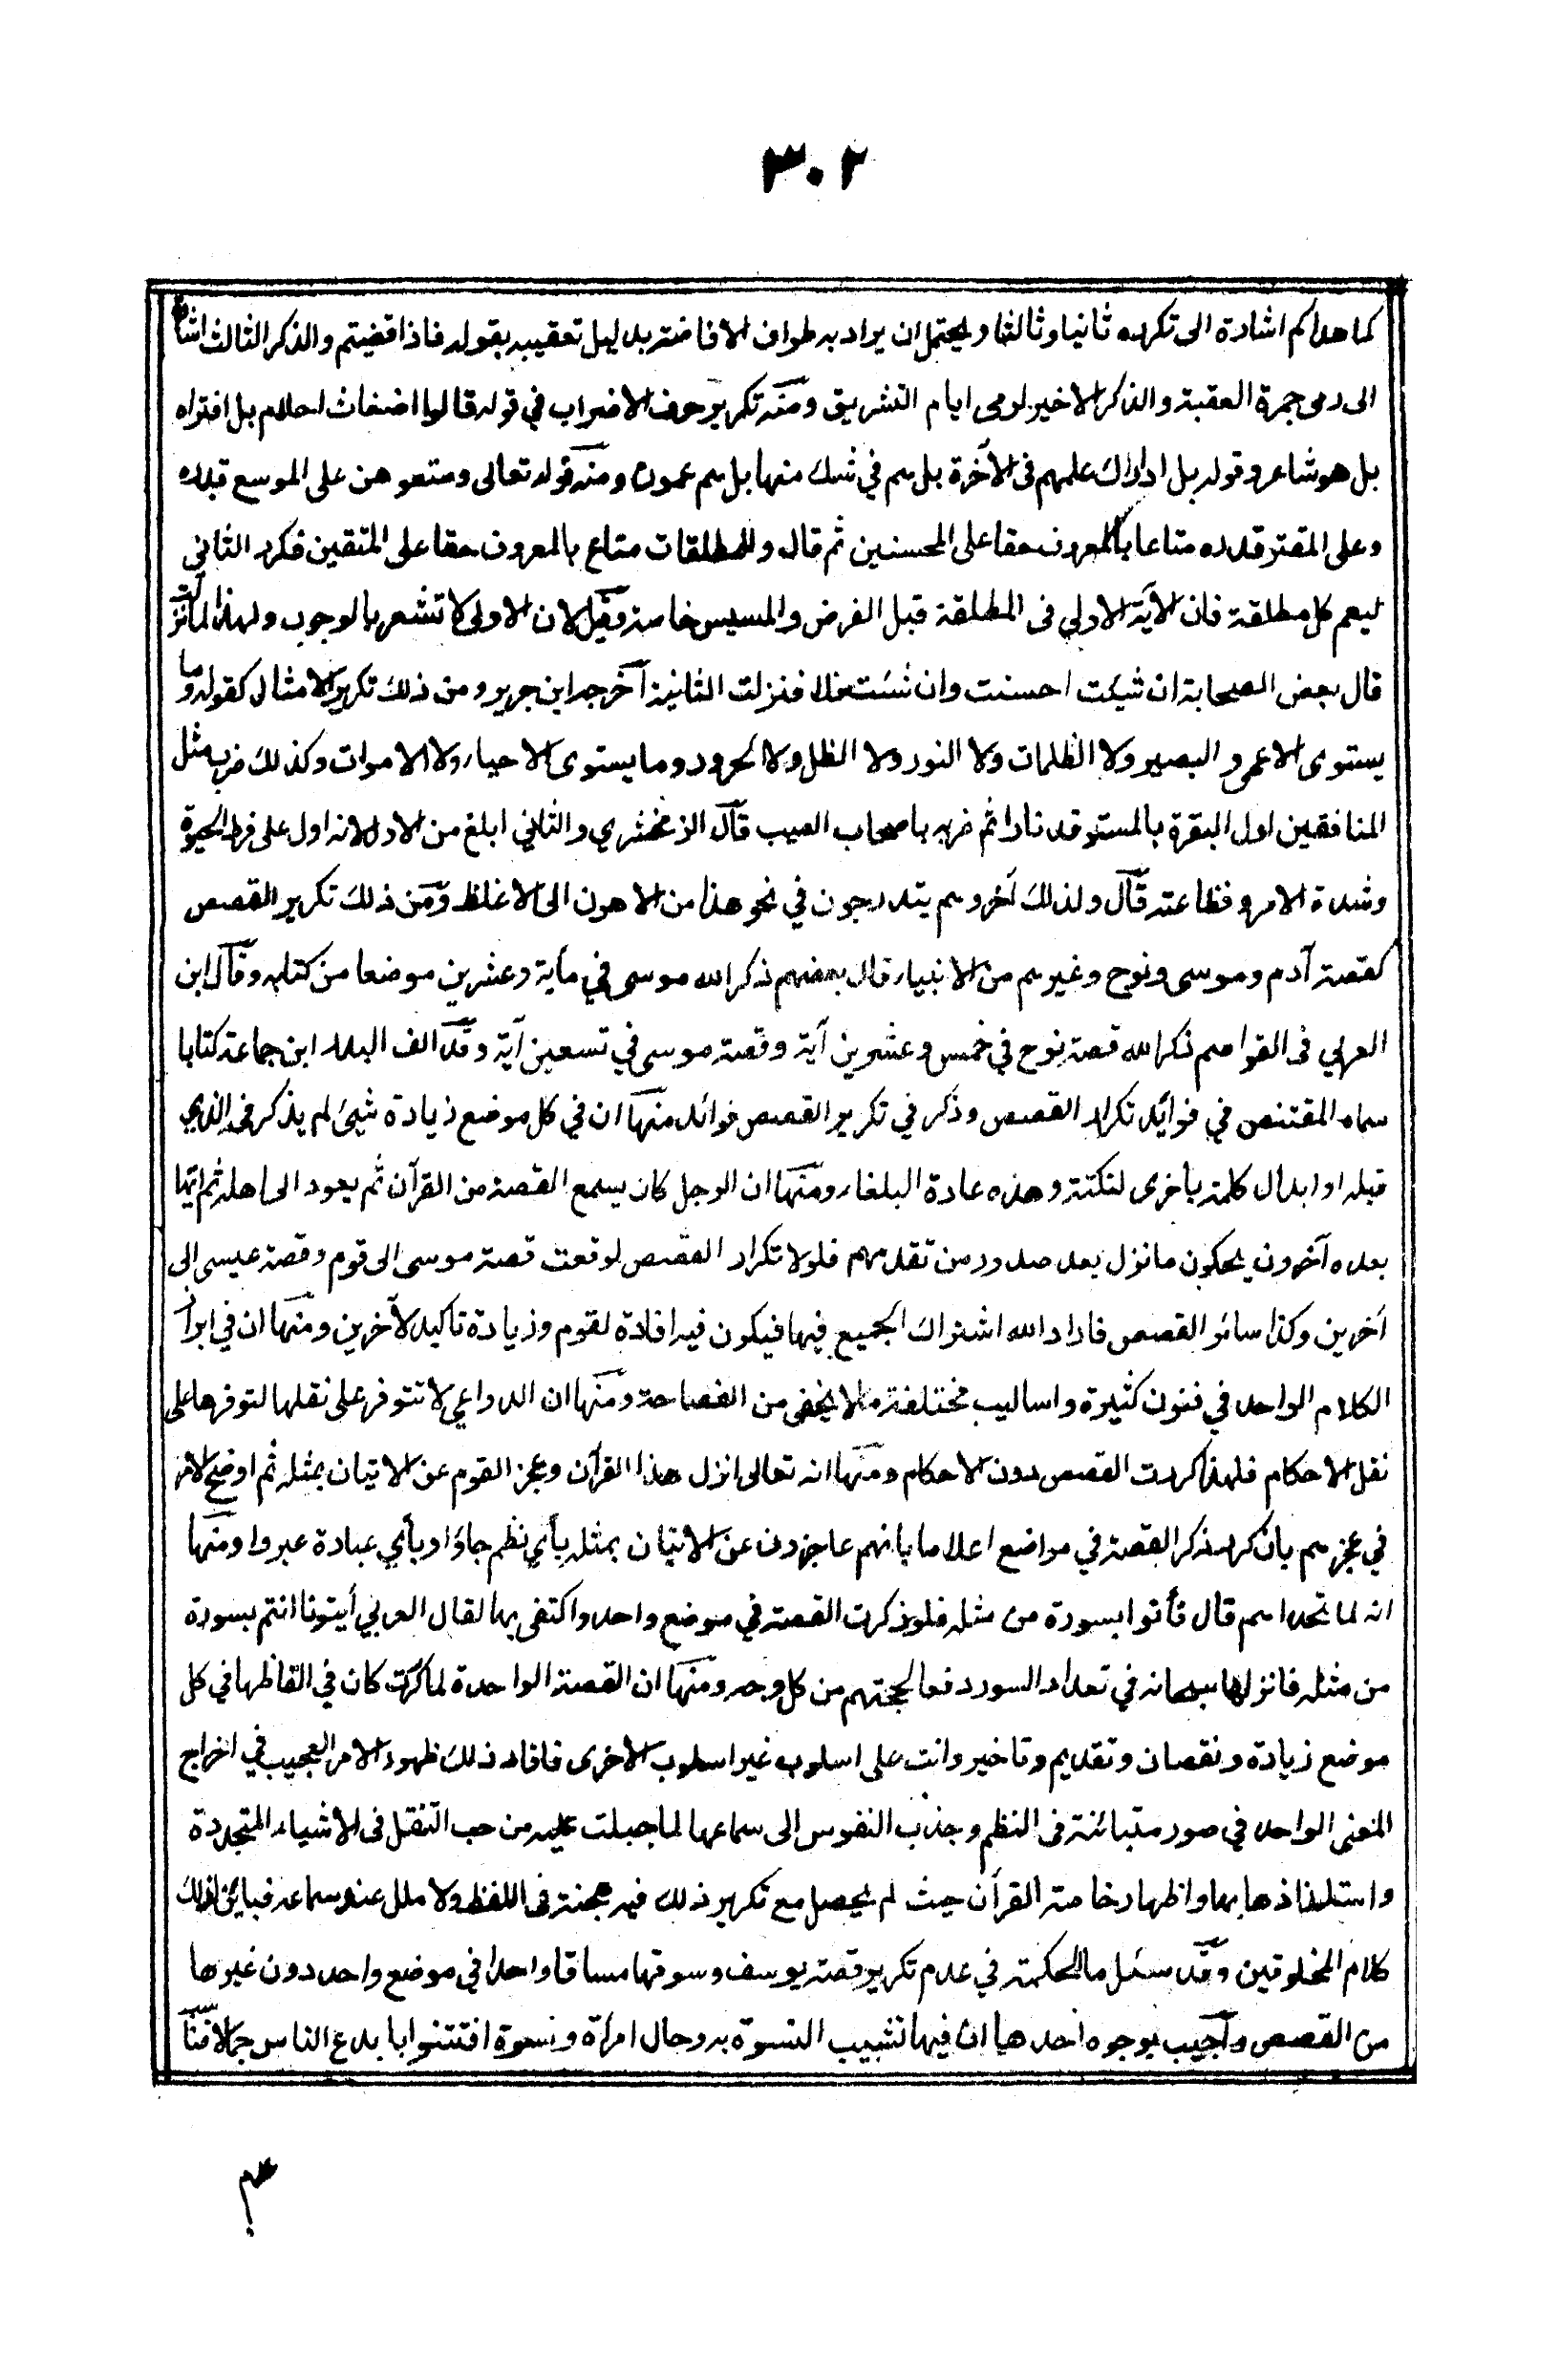 ٣٠٢
كما هداكم اشارة الى تكرره ثانيا وثالثا ويحتمل ان يراد به طواف الافاضة بدليل تعقيبه بقوله فاذا قضيتم والذكر الثالث اشارة
الى رمى جمرة العقبة والذكر الاخير لرمى ايام التشريق ومنه تكرير حرف الاضراب في قوله قالوا اضغاث احلام بل افتراه
بل هو شاعر وقوله بل ادارك علمهم فى الآخرة بل هم في شك منها بل هم عمون ومنه قوله تعالى ومتعوهن على الموسع قدره
وعلى المقتر قدره متاعا بالمعروف حقا على المحسنين ثم قال وللمطلقات متاع بالمعروف حقا على المتقين فكرر الثاني
ليعم كل مطلقة فان الآية الاولي فى المطلقة قبل الفرض والمسيس خاصة وقيل لان الاولى لا تشعر بالوجوب ولهذا لما نزلت
قال بعض الصحابة ان شيئت احسنت وان شئت فلا فنزلت الثانية اخرجه ابن جرير ومن ذلك تكرير الامثال كقوله وما
يستوى الاعمى والبصير ولا الظلمات ولا النور ولا الظل ولا الحرور وما يستوى الاحياء ولا الاموات وكذلك ضرب مثل
المنافقين اول البقرة بالمستوقد نارا ثم ضربه باصحاب الصيب قال الزمخشري والثاني ابلغ من الاول لانه اول على فرط الحيرة
وشدة الامر وفظاعته قال ولذلك اخر وهم يتدرجون في نحو هذا من الاهون الى الاغلظ ومن ذلك تكرير القصص
كقصة آدم وموسى ونوح وغيرهم من الانبياء قال بعضهم ذكر الله موسى في مأية وعشرين موضعا من كتابه وقال ابن
العربي فى القواصم ذكر الله قصة نوح في خمس وعشرين آية وقصة موسى في تسعين آية وقد الف البدر ابن جماعة كتابا
سماه المقتنص في فوائد تكرار القصص وذكر في تكرير القصص فوائد منها ان في كل موضع زيادة شيئ لم يذكر فى الذي
قبله او ابدال كلمة بأخرى لنكتة وهذه عادة البلغاء ومنها ان الرجل كان يسمع القصة من القرآن ثم يعود الى اهله ثم اتها
بعده آخرون يحكون ما نزل بعد صدور من تقدمهم فلولا تكرار القصص لوقعت قصة موسى الى قوم وقصة عيسى الى
آخرين وكذا سائر القصص فاراد الله اشتراك الجميع فيها فيكون فيه افادة لقوم وزيادة تاكيد لآخرين ومنها ان في ابراز
الكلام الواحد في فنون كثيرة واساليب مختلفة ما لا يخفى من الفصاحة ومنها ان الدواعي لا تتوفر على نقلها لتوفرها على
نقل الاحكام فلهذا كررت القصص دون الاحكام ومنها انه تعالى انزل هذا القرآن وعجز القوم عن الاتيان بمثله ثم اوضح الامر
في عجزهم بان كرر ذكر القصة في مواضع اعلاما بانهم عاجزون عن الاتيان بمثله بأي نظم جاؤا وبأي عبارة عبروا ومنها
انه لما تحداهم قال فأتوا بسورة من مثله فلو ذكرت القصة في موضع واحد واكتفى بها لقال العربي أيتونا انتم بسورة
من مثله فانزلها سبحانه في تعداد السور دفعا لحجتهم من كل وجه ومنها ان القصة الواحدة لما كررت كان في الفاظها في كل
موضع زيادة ونقصان وتقديم وتاخير وانت على اسلوب غير اسلوب الاخرى فافاد ذلك ظهور الامر العجيب في اخراج
المعنى الواحد في صور متبائنة فى النظم وجذب النفوس الى سماعها لما جبلت عليه من حب التنقل فى الاشياء المتجددة
واستلذاذها بها واظهار خاصة القرآن حيث لم يحصل مع تكرير ذلك فيه هجنة فى اللفظ ولا ملل عند سماعه فباين لذلك
كلام المخلوقين وقد سئل ما الحكمة في عدم تكرير قصة يوسف وسوقها مساقا واحدا في موضع واحد دون غيرها
من القصص واجيب بوجوه احدها ان فيها تشبيب النسوة به وحال امراة ونسوة افتتنوا بابدع الناس جمالا فناسب